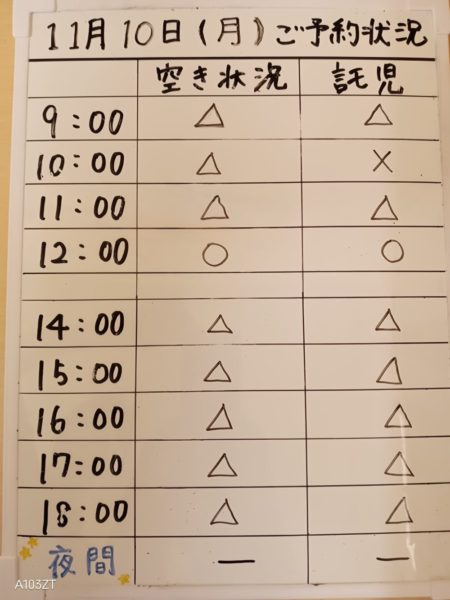 11月10日(月)ご予約状況
空き状況 託児
9:00 △ △
10:00 △ ×
11:00 △ △
12:00 ○ ○
14:00 △ △
15:00 △ △
16:00 △ △
17:00 △ △
18:00 △ △
夜間 ー ー
A103ZT